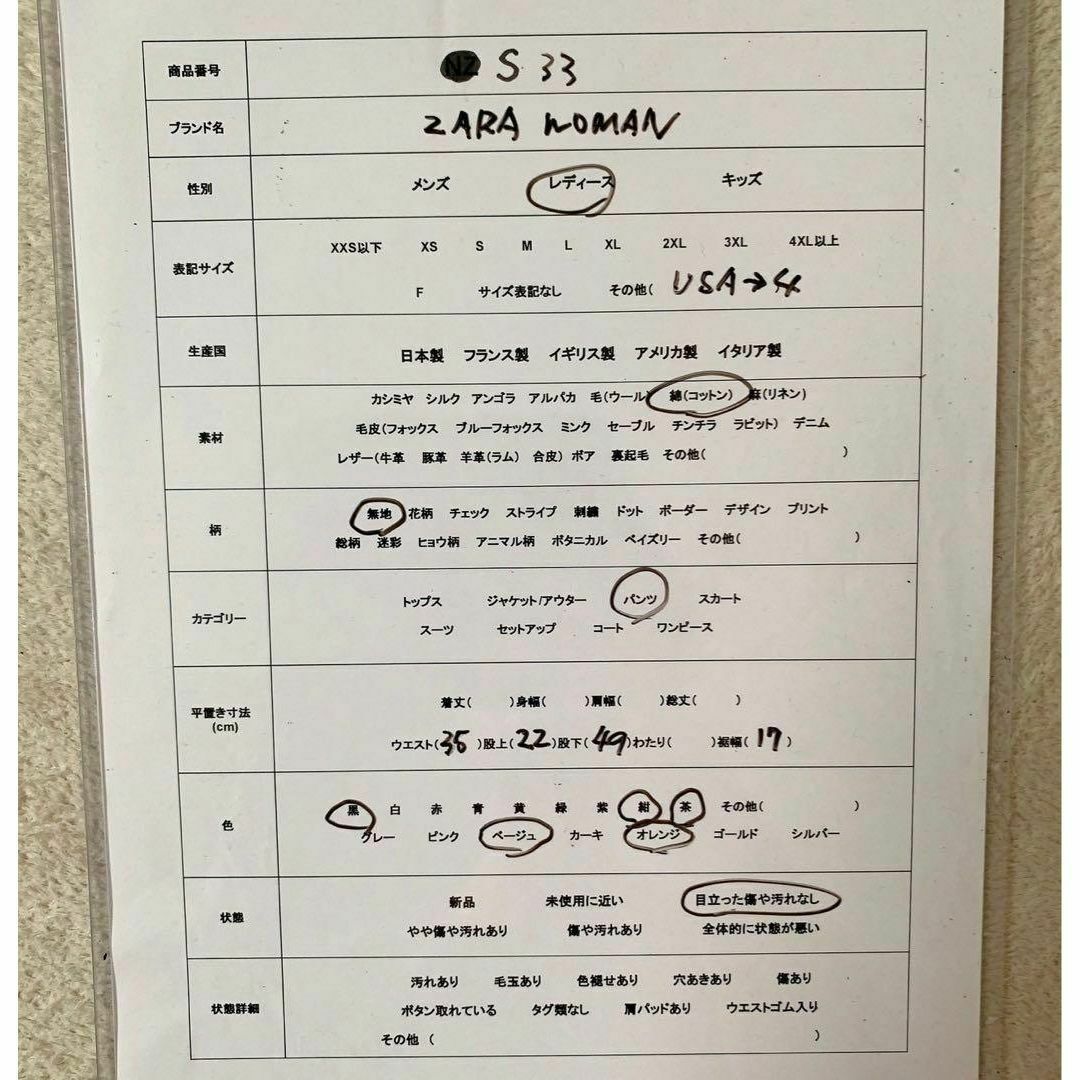 商品番号 NZ S 33
ブランド名 ZARA WOMAN
性別 メンズ レディース キッズ
XXS以下 XS S M L XL 2XL 3XL 4XL以上
表記サイズ
F サイズ表記なし その他( USA→4
生産国 日本製 フランス製 イギリス製 アメリカ製 イタリア製
カシミヤ シルク アンゴラ アルパカ 毛(ウール) 綿(コットン) 麻(リネン)
素材 毛皮(フォックス ブルーフォックス ミンク セーブル チンチラ ラビット) デニム
レザー(牛革 豚革 羊革(ラム) 合皮) ボア 裏起毛 その他( )
無地 花柄 チェック ストライプ 刺繍 ドット ボーダー デザイン プリント
柄
総柄 迷彩 ヒョウ柄 アニマル柄 ボタニカル ペイズリー その他( )
トップス ジャケット/アウター パンツ スカート
カテゴリー
スーツ セットアップ コート ワンピース
着丈( )身幅( )肩幅( )総丈( )
平置き寸法
(cm)
ウエスト(35)股上(22)股下(49)わたり( )裾幅(17)
黒 白 赤 青 黄 緑 紫 紺 茶 その他( )
色
グレー ピンク ベージュ カーキ オレンジ ゴールド シルバー
新品 未使用に近い 目立った傷や汚れなし
状態
やや傷や汚れあり 傷や汚れあり 全体的に状態が悪い
汚れあり 毛玉あり 色褪せあり 穴あきあり 傷あり
状態詳細 ボタン取れている タグ類なし 肩パッドあり ウエストゴム入り
その他 ( )